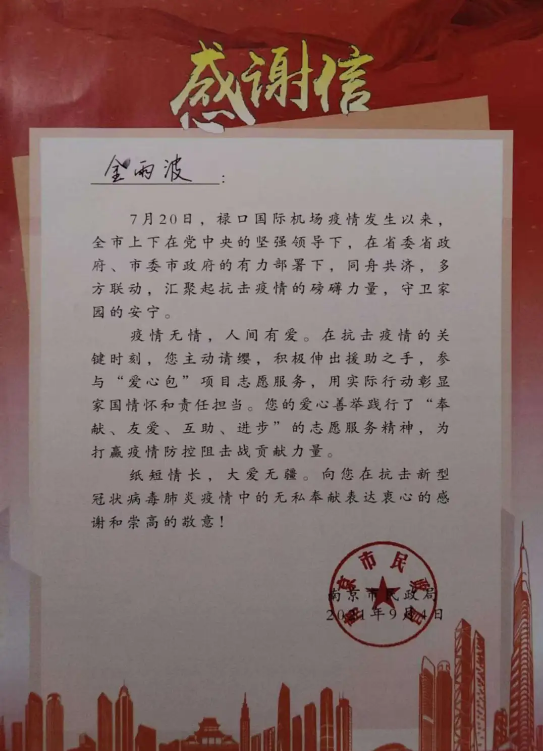 感谢信
金雨波：
7月20日，禄口国际机场疫情发生以来，
全市上下在党中央的坚强领导下，在省委省政
府、市委市政府的有力部署下，同舟共济，多
方联动，汇聚起抗击疫情的磅礴力量，守卫家
园的安宁。
疫情无情，人间有爱。在抗击疫情的关
键时刻，您主动请缨，积极伸出援助之手，参
与“爱心包”项目志愿服务，用实际行动彰显
家国情怀和责任担当。您的爱心善举践行了“奉
献、友爱、互助、进步”的志愿服务精神，为
打赢疫情防控阻击战贡献力量。
纸短情长，大爱无疆。向您在抗击新型
冠状病毒肺炎疫情中的无私奉献表达衷心的感
谢和崇高的敬意！
南京市民政局
南京市民政局
2021年9月4日